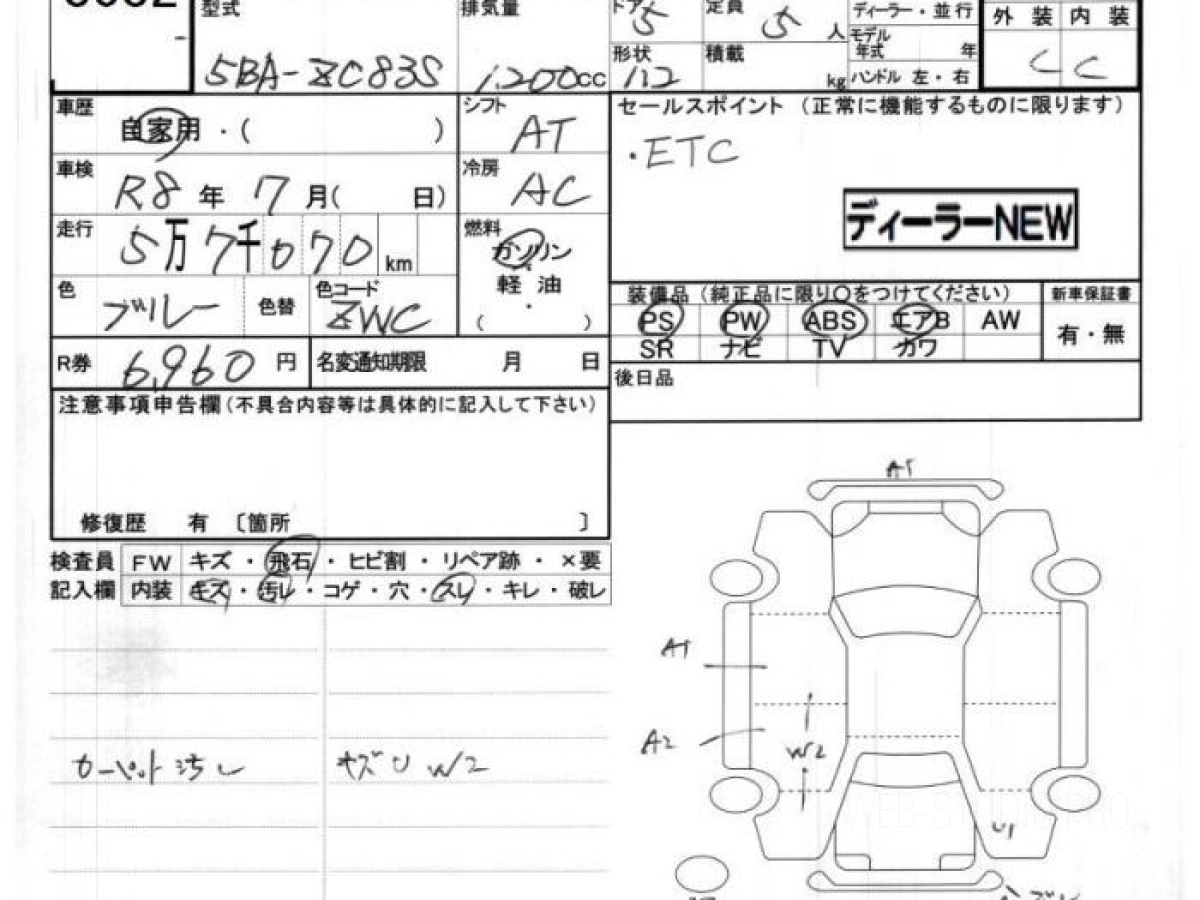 型式 排気量 ドア 5 定員 5 人 ディーラー・並行 外装 内装
5BA-ZC83S 1,200cc 形状 112 積載 kg モデル年式 年 C C
ハンドル 左・右
車歴 自家用・( ) シフト AT セールスポイント（正常に機能するものに限ります）
・ETC
車検 R8年 7月( 日) 冷房 AC
ディーラーNEW
走行 5万7千070 km 燃料 ガソリン
軽・油
( )
色 ブルー 色替 色コード ZWC
装備品（純正品に限り〇をつけてください） 新車保証書
PS PW ABS エアB AW 有・無
SR ナビ TV カワ
R券 6,960円 名変通知期限 月 日
後日品
注意事項申告欄(不具合内容等は具体的に記入して下さい)
修復歴 有 〔箇所 〕
検査員 FW キズ・飛石・ヒビ割・リペア跡・×要
記入欄 内装 キズ・汚レ・コゲ・穴・スレ・キレ・破レ
A1
A1
A2
W2
カーペット汚レ キズU W2
U1